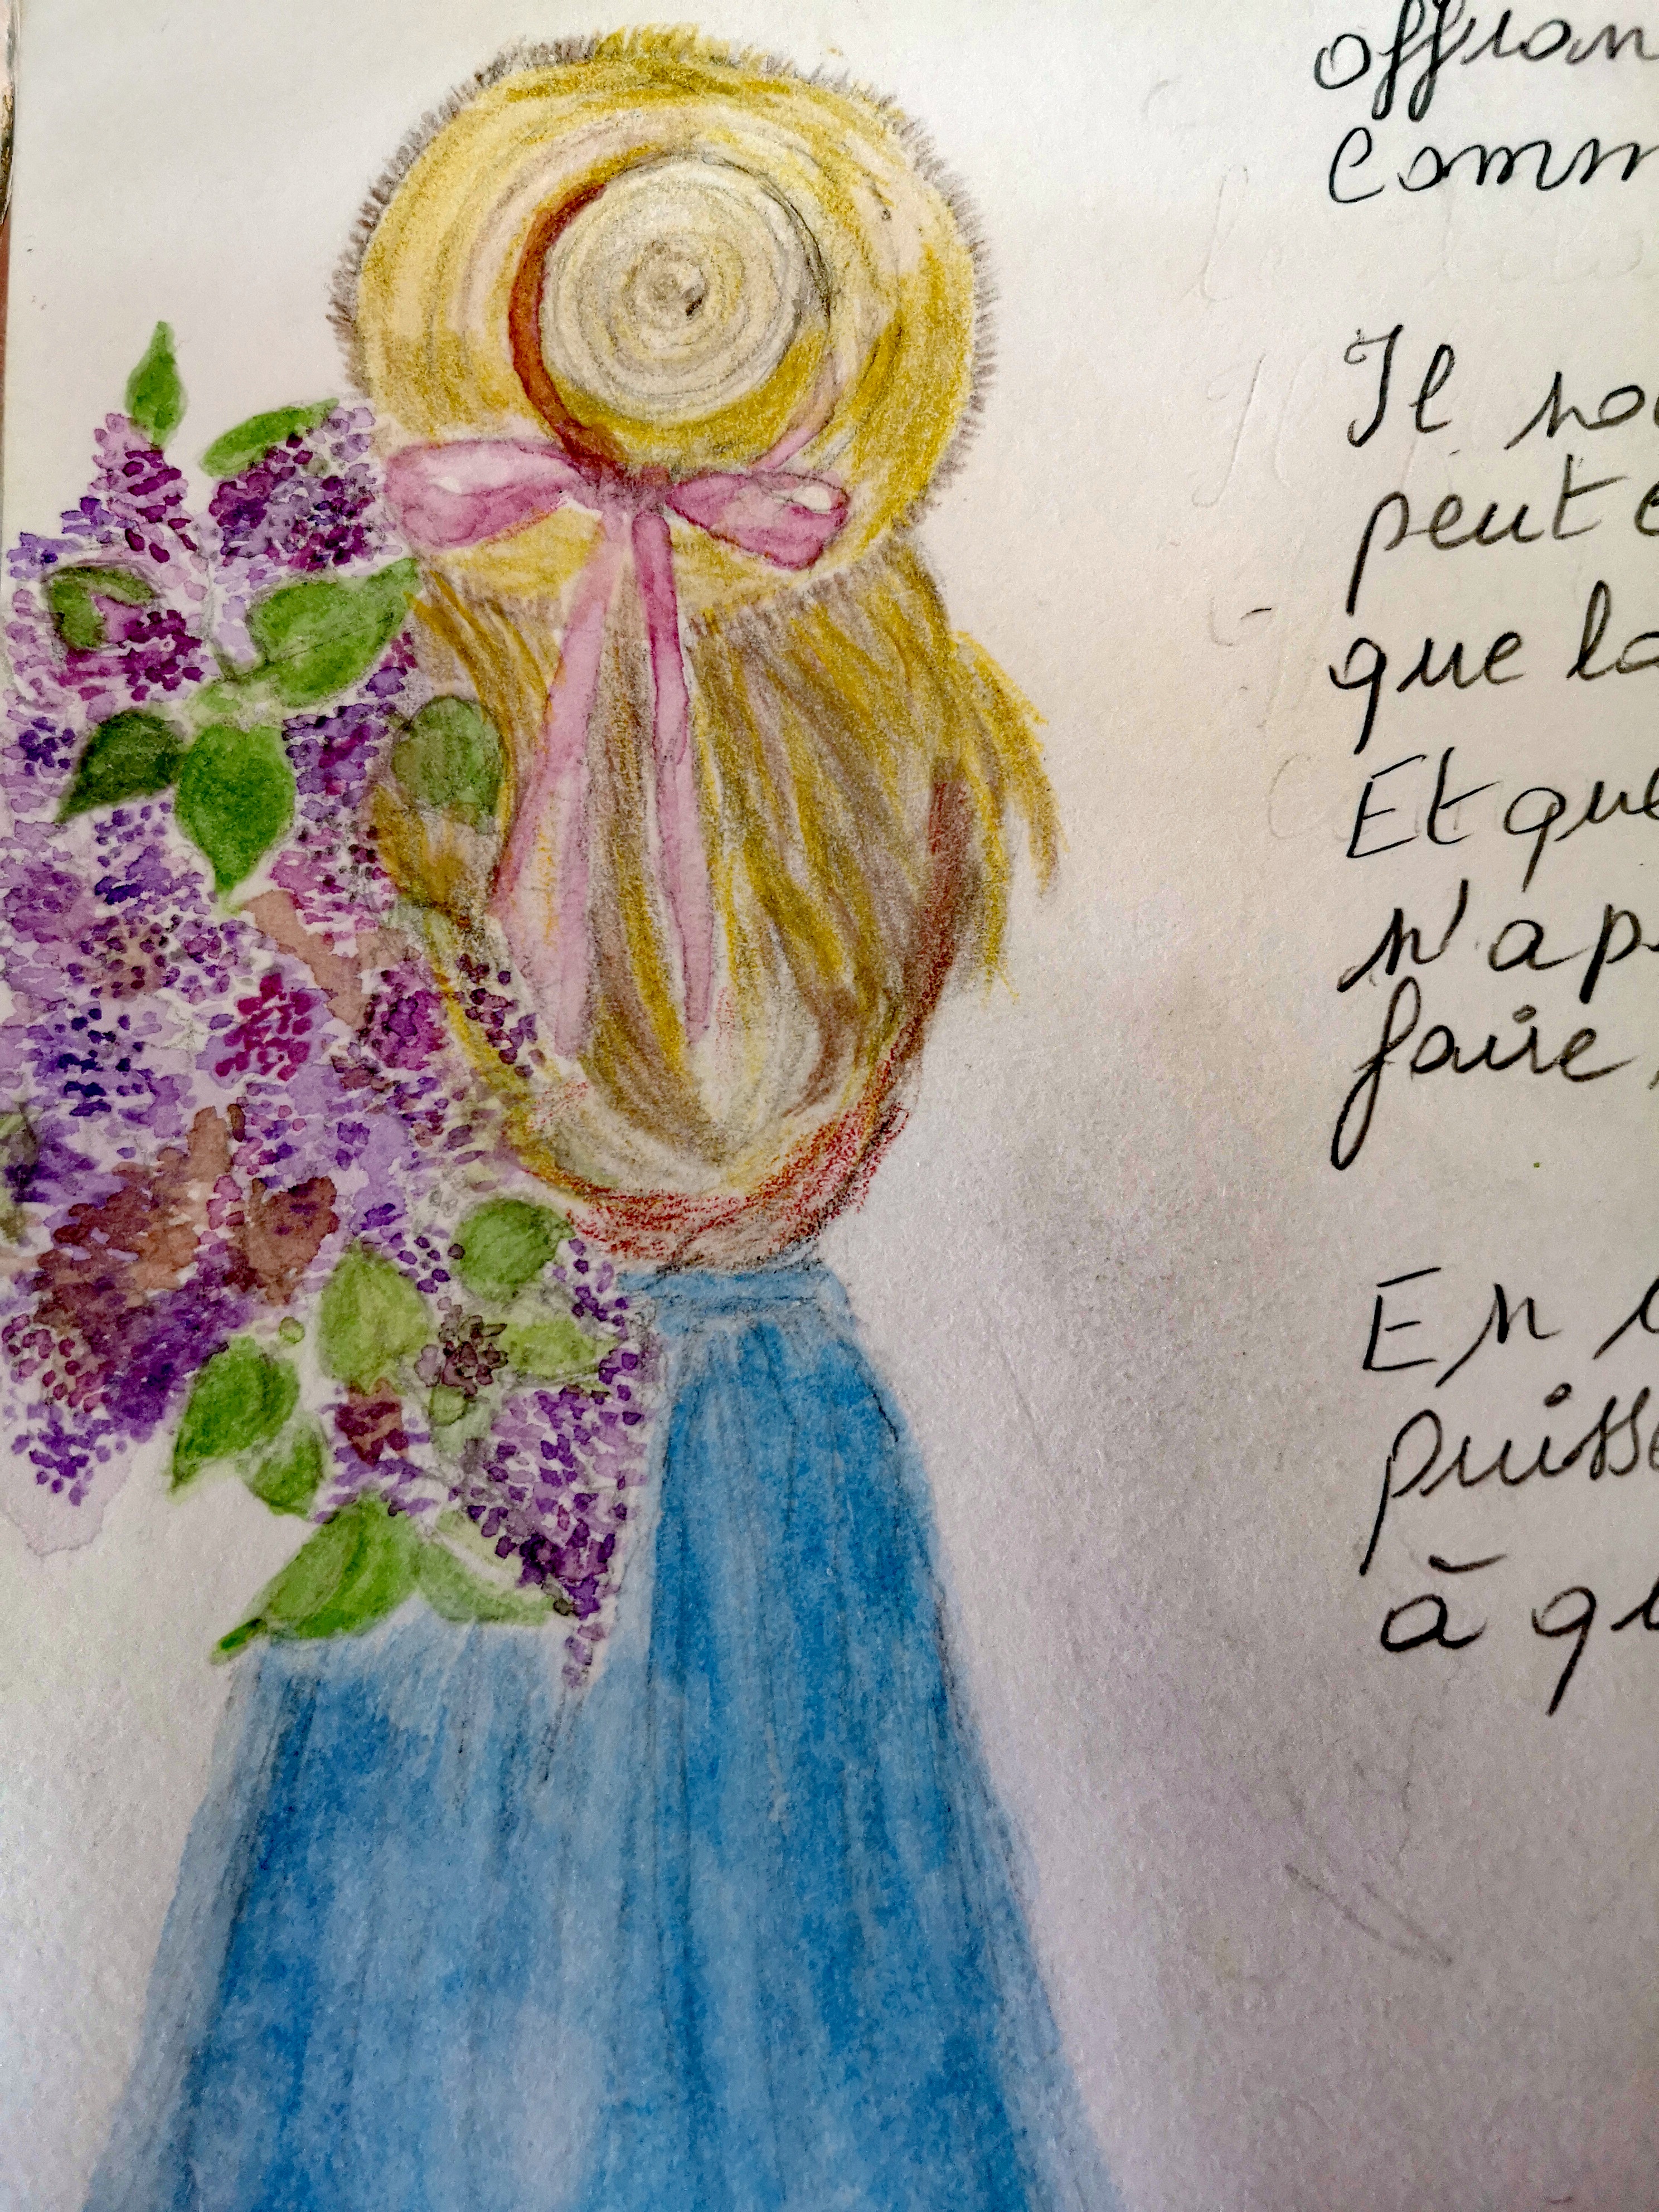 offran
comm
Il no
peut e
que la
Et que
n'a p
faire,
En
puiss
à q